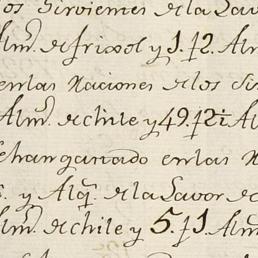 os Sirvientes de la Lavor
Alm.s de frixol y 1.f 2. Alm
en las Raciones de los Sir
Alm.s de chile y 49.f 2i Al
Se han gastado en las R
s. y Alq.s de la Lavor de
Alm.s de chile y 5.f 1. Alm.